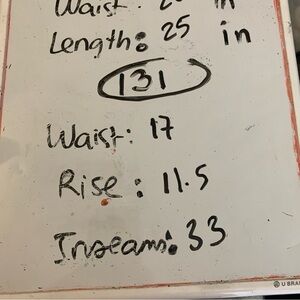 Waist: 2
in
Length: 25 in
131
Waist: 17
Rise: 11.5
Inseam: 33
U BRA